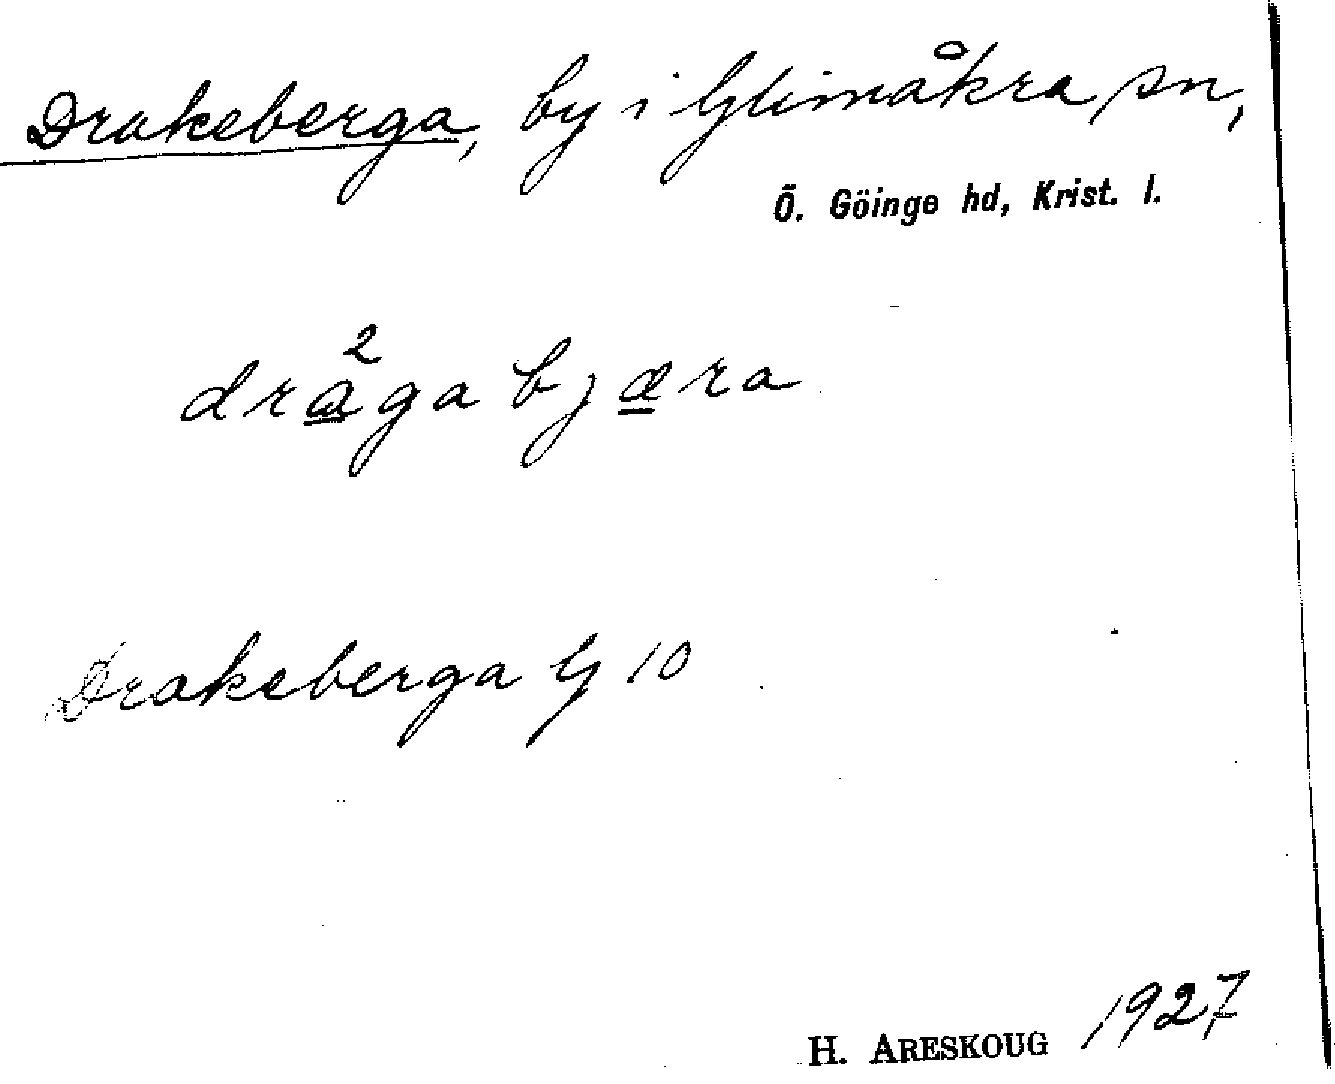 Drakeberga, by i Glimåkra sn,
Ö. Göinge hd, Krist. l.
2
draga bjæra
Drakeberga G 10
H. ARESKOUG 1927